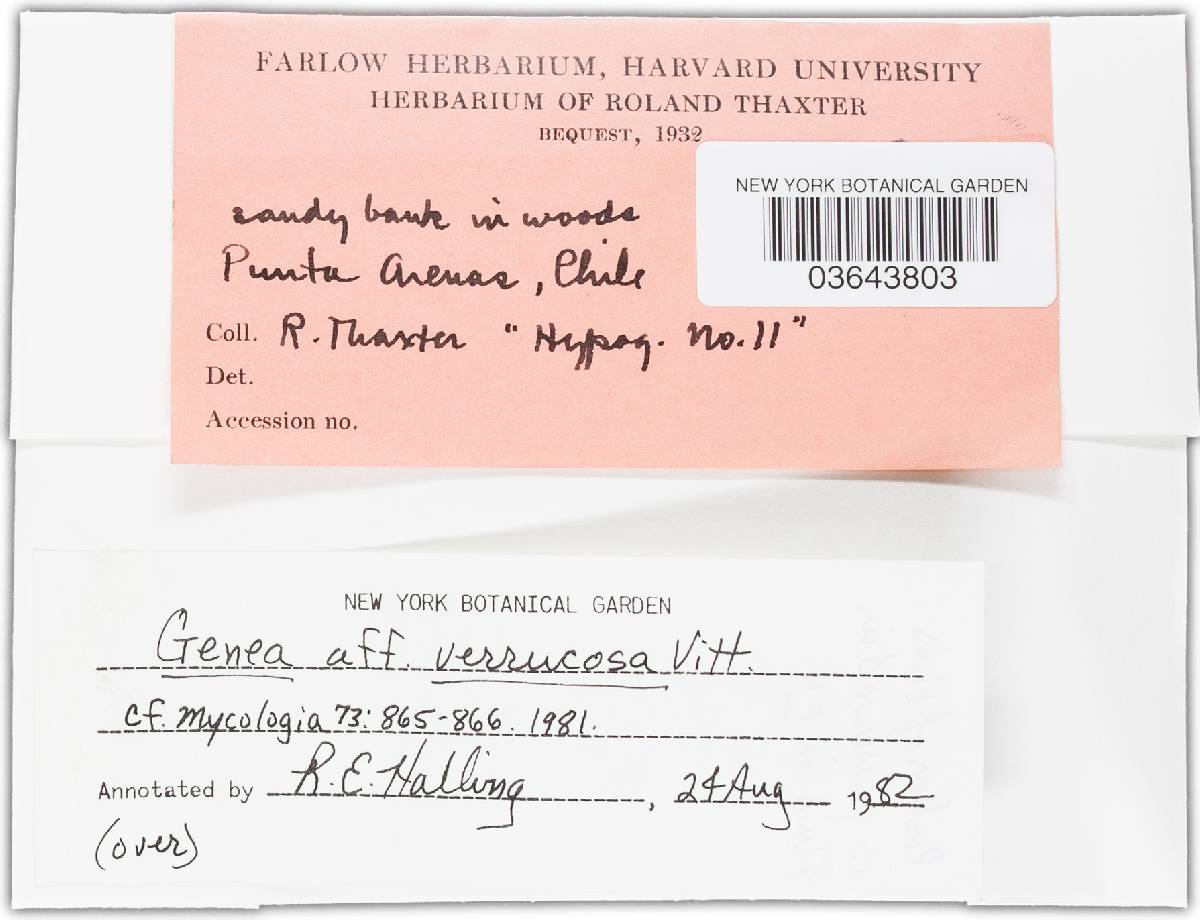 FARLOW HERBARIUM, HARVARD UNIVERSITY
HERBARIUM OF ROLAND THAXTER
BEQUEST, 1932
NEW YORK BOTANICAL GARDEN
03643803
sandy bank in woods
Punta Arenas, Chile
Coll. R. Thaxter "Hypog. No. 11"
Det.
Accession no.
NEW YORK BOTANICAL GARDEN
Genea aff. verrucosa Vitt.
cf. Mycologia 73: 865-866. 1981.
Annotated by R.E. Halling, 24 Aug 1982
(over)